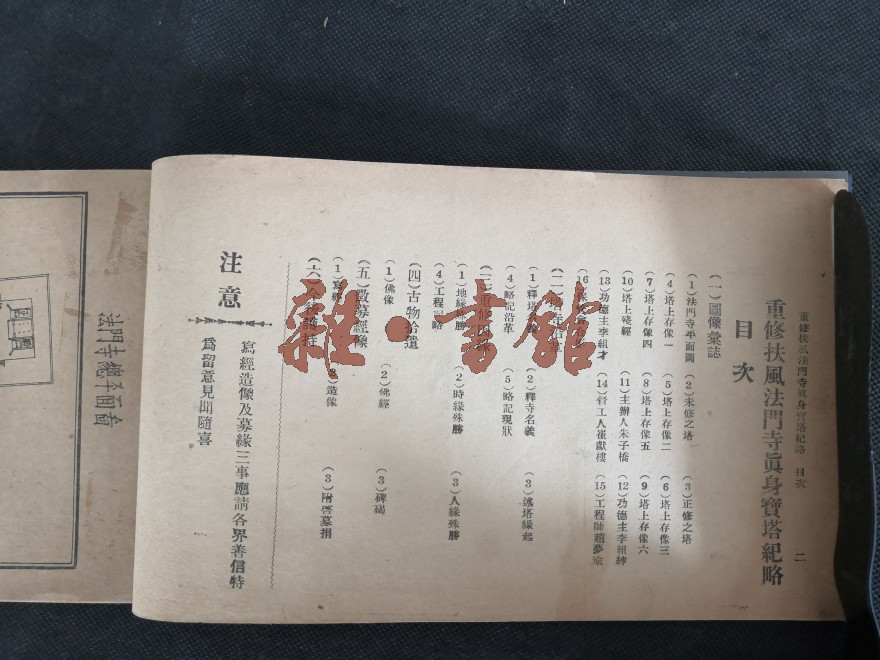 重修扶風法門寺眞身寶塔紀略 目次 二
重修扶風法門寺眞身寶塔紀略
目次
(一)圖像彙誌
(1)法門寺平面圖 (2)未修之塔 (3)正修之塔
(4)塔上存像一 (5)塔上存像二 (6)塔上存像三
(7)塔上存像四 (8)塔上存像五 (9)塔上存像六
(10)塔上殘經 (11)主辦人朱子橋 (12)功德主李組紳
(13)功德主李組才 (14)督工人崔獻樓 (15)工程師趙夢瑜
(16)
(二)塔寺沿革
(1)釋塔名義 (2)釋寺名義 (3)述塔緣起
(4)略記沿革 (5)略記現狀
(三)重修因緣
(1)地緣殊勝 (2)時緣殊勝 (3)人緣殊勝
(4)工程記略
(四)古物拾遺
(1)佛像 (2)佛經 (3)碑碣
(五)募經像
(1)寫經 (2)造像 (3)附啓募捐
(六)
注意
寫經造像及募緣三事應請各界善信特
爲留意見聞隨喜
法門寺總平面圖
雜·書館